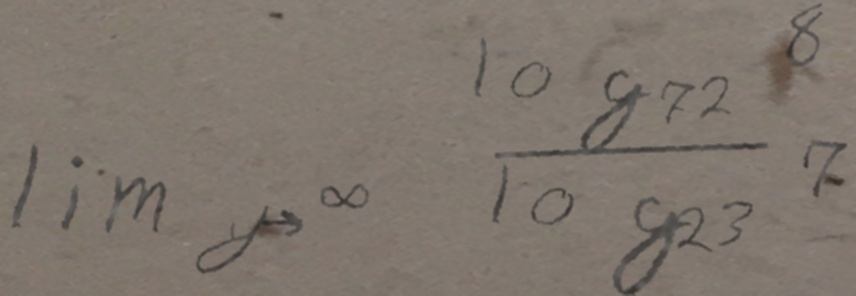 lim y→∞ \frac{10 g_{72} 8}{10 g_{23} 7}